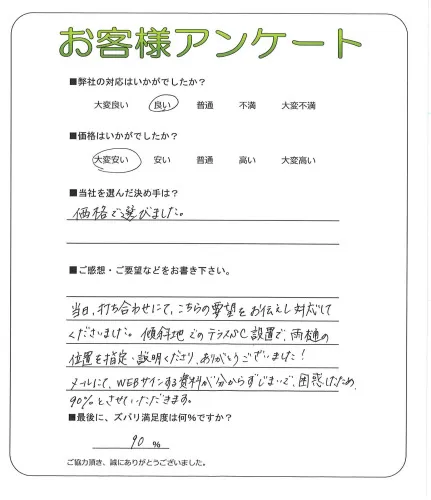 お客様アンケート
■弊社の対応はいかがでしたか？
大変良い 良い 普通 不満 大変不満
■価格はいかがでしたか？
大変安い 安い 普通 高い 大変高い
■当社を選んだ決め手は？
価格で選びました。
■ご感想・ご要望などをお書き下さい。
当日、打ち合わせにて、こちらの要望をお伝えし対応して
くださいました。傾斜地でのテラスSC設置で、雨樋の
位置を指定・説明くださり、ありがとうございました！
メールにて、WEBサインする資料が分からずじまいで、困惑したため、
90%とさせていただきます。
■最後に、ズバリ満足度は何％ですか？
90 %
ご協力頂き、誠にありがとうございました。